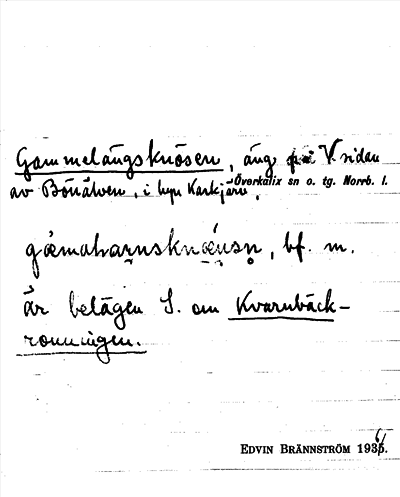 Gammelängsknösen, äng på V. sidan
av Bönälven, i byn Karkjärv,
Överkalix sn o. tg. Norrb. l.
bf. m.
är belägen S. om Kvarnbäck-
ronningen.
EDVIN BRÄNNSTRÖM 1936.